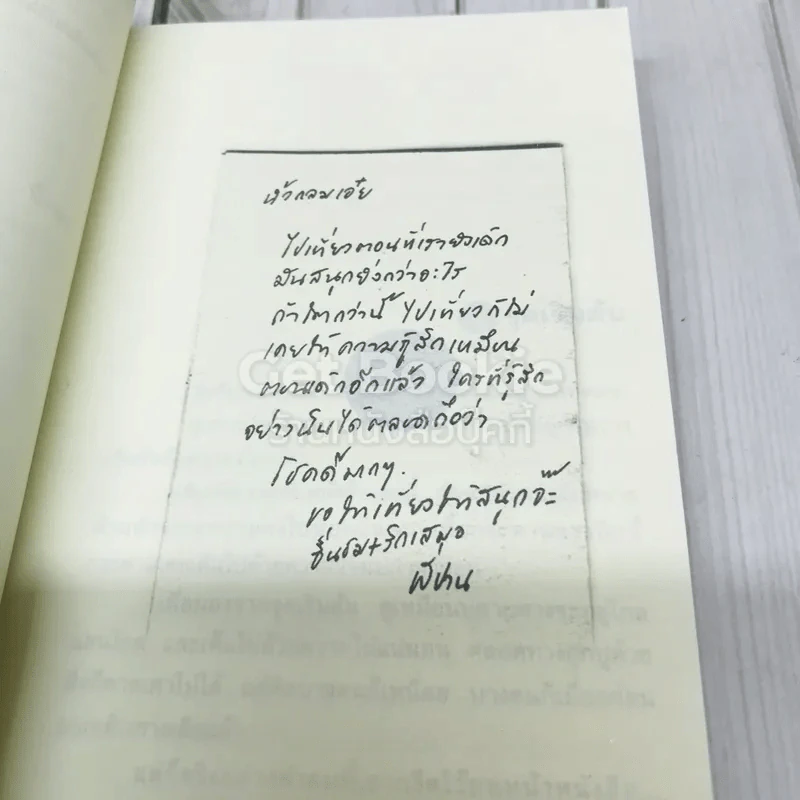 หัวกลมเอ๋ย
ไปเที่ยวตอนที่เรายังเด็ก
มันสนุกยิ่งกว่าอะไร
ถ้าโตกว่านี้ ไปเที่ยวก็ไม่
เคยให้ความรู้สึกเหมือน
ตอนเด็กอีกแล้ว ใครที่รู้สึก
อย่างนั้นได้ตลอดถือว่า
โชคดีมากๆ.
ขอให้เที่ยวให้สนุกจ้ะ
ชื่นชม+รักเสมอ
Get Bookie
ร้านหนังสือบุคกี้